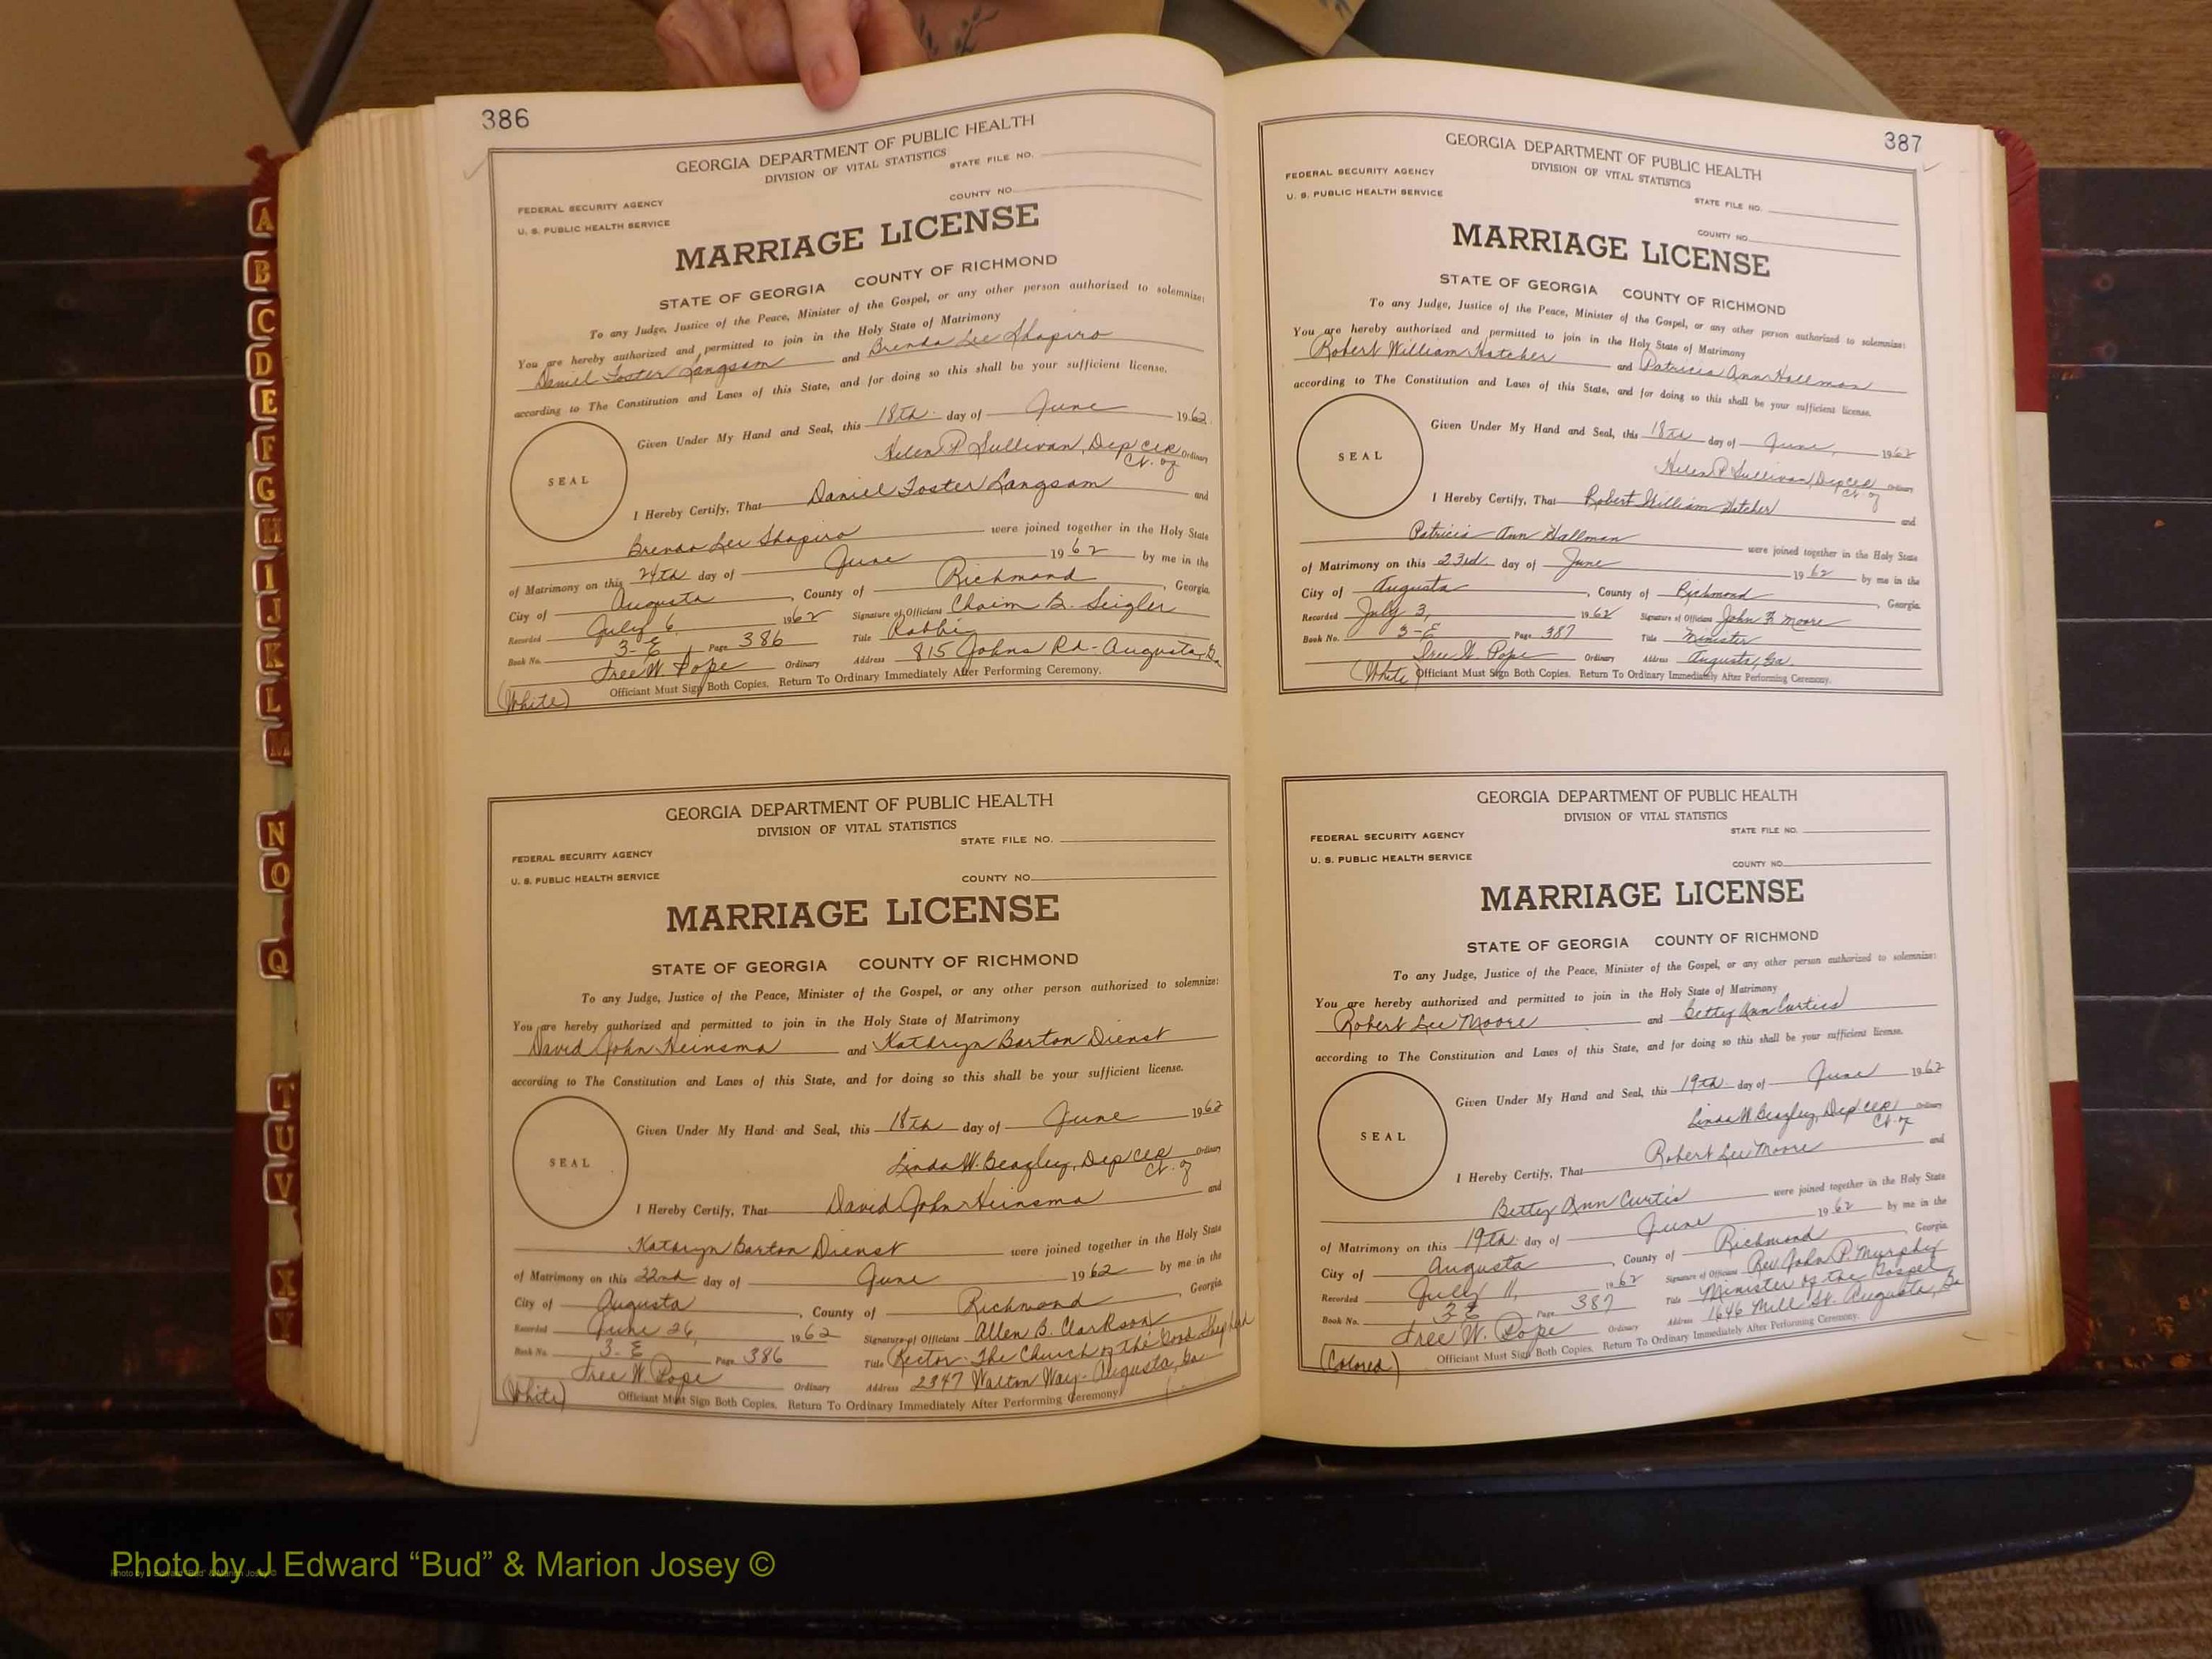 386
GEORGIA DEPARTMENT OF PUBLIC HEALTH
DIVISION OF VITAL STATISTICS
STATE FILE NO.
FEDERAL SECURITY AGENCY
COUNTY NO.
U. S. PUBLIC HEALTH SERVICE
MARRIAGE LICENSE
STATE OF GEORGIA COUNTY OF RICHMOND
To any Judge, Justice of the Peace, Minister of the Gospel, or any other person authorized to solemnize:
You are hereby authorized and permitted to join in the Holy State of Matrimony
Daniel Foster Langsam and Brenda Lee Shapiro
according to The Constitution and Laws of this State, and for doing so this shall be your sufficient license.
Given Under My Hand and Seal, this 18th day of June 1962
Helen P. Sullivan, Dep Clk Ordinary
Ct. of
SEAL
I Hereby Certify, That Daniel Foster Langsam and
Brenda Lee Shapiro were joined together in the Holy State
of Matrimony on this 24th day of June 1962 by me in the
City of Augusta, County of Richmond, Georgia.
Recorded July 6 1962 Signature of Officiant Chaim B. Seigler
Book No. 3-E Page 386 Title Rabbi
Tree W. Pope Ordinary Address 815 Johns Rd - Augusta, Ga
(White) Officiant Must Sign Both Copies. Return To Ordinary Immediately After Performing Ceremony.
GEORGIA DEPARTMENT OF PUBLIC HEALTH
DIVISION OF VITAL STATISTICS
STATE FILE NO.
FEDERAL SECURITY AGENCY
U. S. PUBLIC HEALTH SERVICE
COUNTY NO.
MARRIAGE LICENSE
STATE OF GEORGIA COUNTY OF RICHMOND
To any Judge, Justice of the Peace, Minister of the Gospel, or any other person authorized to solemnize:
You are hereby authorized and permitted to join in the Holy State of Matrimony
David John Heinsma and Kathryn Barton Dienst
according to The Constitution and Laws of this State, and for doing so this shall be your sufficient license.
Given Under My Hand and Seal, this 18th day of June 1962
Linda W. Beazley, Dep Clk Ordinary
Ct. of
SEAL
I Hereby Certify, That David John Heinsma and
Kathryn Barton Dienst were joined together in the Holy State
of Matrimony on this 22nd day of June 1962 by me in the
City of Augusta, County of Richmond, Georgia
Recorded June 26, 1962 Signature of Officiant Allen B. Clarkson
Book No. 3-E Page 386 Title Rector - The Church of the Good Shepherd
Tree W. Pope Ordinary Address 2347 Walton Way - Augusta, Ga
(White) Officiant Must Sign Both Copies. Return To Ordinary Immediately After Performing Ceremony.
387
GEORGIA DEPARTMENT OF PUBLIC HEALTH
DIVISION OF VITAL STATISTICS
FEDERAL SECURITY AGENCY
U. S. PUBLIC HEALTH SERVICE
STATE FILE NO.
COUNTY NO.
MARRIAGE LICENSE
STATE OF GEORGIA COUNTY OF RICHMOND
To any Judge, Justice of the Peace, Minister of the Gospel, or any other person authorized to solemnize:
You are hereby authorized and permitted to join in the Holy State of Matrimony
Robert William Hatcher and Patricia Ann Hallman
according to The Constitution and Laws of this State, and for doing so this shall be your sufficient license.
Given Under My Hand and Seal, this 18th day of June, 1962
Helen P. Sullivan, Dep Clk Ordinary
Ct. of
SEAL
I Hereby Certify, That Robert William Hatcher and
Patricia Ann Hallman were joined together in the Holy State
of Matrimony on this 23rd day of June 1962 by me in the
City of Augusta, County of Richmond, Georgia
Recorded July 3, 1962 Signature of Officiant John F. Moore
Book No. 3-E Page 387 Title Minister
Tree W. Pope Ordinary Address Augusta, Ga.
(White) Officiant Must Sign Both Copies. Return To Ordinary Immediately After Performing Ceremony.
GEORGIA DEPARTMENT OF PUBLIC HEALTH
DIVISION OF VITAL STATISTICS
STATE FILE NO.
FEDERAL SECURITY AGENCY
U. S. PUBLIC HEALTH SERVICE
COUNTY NO.
MARRIAGE LICENSE
STATE OF GEORGIA COUNTY OF RICHMOND
To any Judge, Justice of the Peace, Minister of the Gospel, or any other person authorized to solemnize:
You are hereby authorized and permitted to join in the Holy State of Matrimony
Robert Lee Moore and Betty Ann Curtis
according to The Constitution and Laws of this State, and for doing so this shall be your sufficient license.
Given Under My Hand and Seal, this 19th day of June 1962
Linda W. Beazley, Dep Clk Ordinary
Ct. of
SEAL
I Hereby Certify, That Robert Lee Moore and
Betty Ann Curtis were joined together in the Holy State
of Matrimony on this 19th day of June 1962 by me in the
City of Augusta, County of Richmond, Georgia
Recorded July 11, 1962 Signature of Officiant Rev. John P. Murphy
Book No. 3E Page 387 Title Minister of the Gospel
Tree W. Pope Ordinary Address 1646 Mill St. Augusta, Ga
(Colored) Officiant Must Sign Both Copies. Return To Ordinary Immediately After Performing Ceremony.
A
B
C
D
E
F
G
H
I
J
K
L
M
N
O
Q
T
U
V
X
Y
Photo by J Edward “Bud” & Marion Josey ©
Photo by J Edward “Bud” & Marion Josey ©